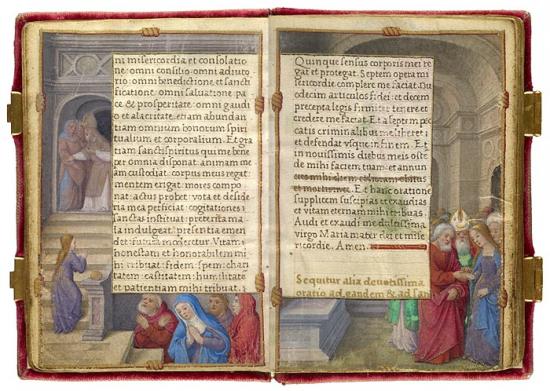 ni misericordia et consolatio
ne: omni consilio: omni adiuto
rio: omni benedictione et sancti
ficatione: omni saluatione: pa
ce & prosperitate: omni gaudi
o et alacritate: etiam abundan
tiam omnium bonorum spiri
tualium et corporalium. Et gra
tiam sanctispiritus qui me bene
per omnia disponat: animam me
am custodiat: corpus meus regat:
mentem erigat: mores compo
nat: actus probet: vota et deside
ria mea perficiat: cogitationes
sanctas instituat: preterita ma
la indulgeat: presentia emen
det: futura moderetur. Vitam
honestam et honorabilem mi
hi tribuat: fidem: spem: chari
tatem: castitatem: humilitate
et patientiam mihi tribuat:
Quinque sensus corporis mei re
gat et protegat. Septem opera mi
sericordie complere me faciat. Du
odecim articulos fidei: et decem
precepta legis firmiter tenere et
credere me faciat. Et a septem pec
catis criminalibus me liberet:
et defendat vsque in finem. Et
in nouissimis diebus meis oste
de mihi faciem tuam: et annun
cies mihi diem
et Et hanc oratione
supplicem suscipias et exaudias
et vitam eternam mihi tribuas.
Audi et exaudi me dulcissima
virgo Maria mater dei et mise
ricordie. Amen.
Sequitur alia deuotissima
oratio ad eandem & ad san